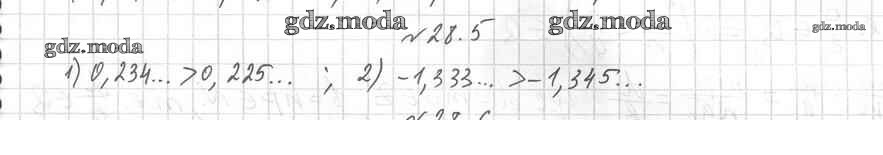 gdz.moda № 28.5 gdz.moda gdz.moda
gdz.moda
1) 0,234... > 0,225... ; 2) -1,333... > -1,345...